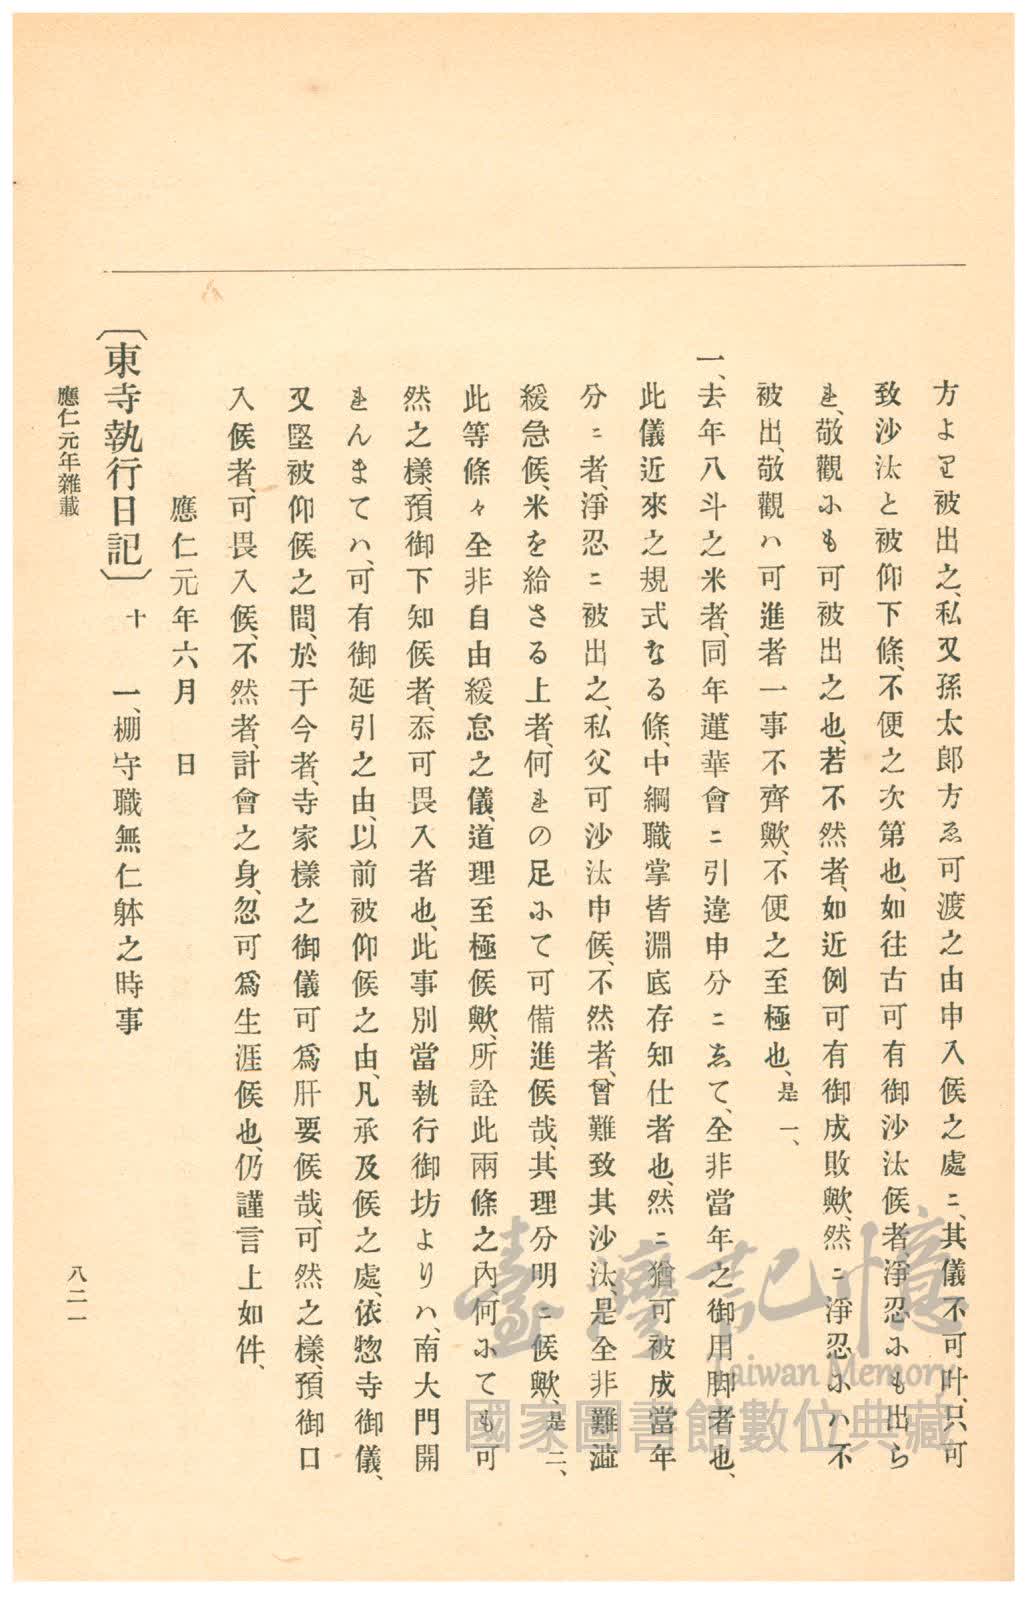 方よᄅ被出之、私又孫太郎方ゑ可渡之由申入候之處ニ、其儀不可叶、只可
致沙汰と被仰下條、不便之次第也、如往古可有御沙汰候者淨忍ふも出ら
れ、敬觀ふも可被出之也、若不然者、如近例可有御成敗歟、然ニ淨忍ふハ不
被出、敬觀ハ可進者一事不齊歟、不便之至極也、是一、
一、去年八斗之米者、同年蓮華會ニ引違申分ニゑて、全非當年之御用脚者也、
此儀近來之規式なる條、中綱職掌皆淵底存知仕者也、然ニ猶可被成當年
分ニ者、淨忍ニ被出之、私父可沙汰申候、不然者、曾難致其沙汰、是全非難澁
緩急候、米を給さる上者、何れの足ふて可備進候哉、其理分明ニ候歟、是二、
此等條々全非自由緩怠之儀、道理至極候歟、所詮此兩條之內、何ふても可
然之樣、預御下知候者、忝可畏入者也、此事別當執行御坊よりハ、南大門開
れんまてハ、可有御延引之由、以前被仰候之由、凡承及候之處、依惣寺御儀、
又堅被仰候之間、於于今者、寺家樣之御儀可爲肝要候哉、可然之樣、預御口
入候者、可畏入候、不然者、計會之身、忽可爲生涯候也、仍謹言上如件、
應仁元年六月　日
〔東寺執行日記〕十　一、棚守職無仁躰之時事
應仁元年雜載
八二一
臺灣記憶
Taiwan Memory
國家圖書館數位典藏